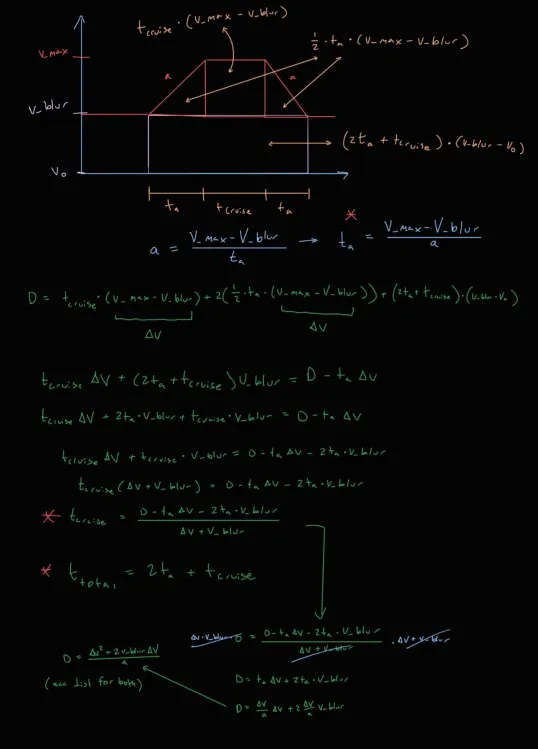 t_cruise · (V_max - V_blur)
½ · t_a · (V_max - V_blur)
V_max
a
a
V_blur
(2t_a + t_cruise) · (V_blur - V_0)
V_0
t_a
t_cruise
t_a
a = (V_max - V_blur) / t_a → * t_a = (V_max - V_blur) / a
D = t_cruise · (V_max - V_blur) + 2(½ · t_a · (V_max - V_blur)) + (2t_a + t_cruise) · (V_blur - V_0)
ΔV
ΔV
t_cruise ΔV + (2t_a + t_cruise) V_blur = D - t_a ΔV
t_cruise ΔV + 2t_a · V_blur + t_cruise · V_blur = D - t_a ΔV
t_cruise ΔV + t_cruise · V_blur = D - t_a ΔV - 2t_a · V_blur
t_cruise (ΔV + V_blur) = D - t_a ΔV - 2t_a · V_blur
* t_cruise = (D - t_a ΔV - 2t_a · V_blur) / (ΔV + V_blur)
* t_total = 2t_a + t_cruise
ΔV + V_blur · 0 = (D - t_a ΔV - 2t_a · V_blur) / (ΔV + V_blur) · ΔV + V_blur
D = (ΔV² + 2V_blur ΔV) / a
(acc dist for both)
D = t_a ΔV + 2t_a · V_blur
D = ΔV/a ΔV + 2 ΔV/a V_blur